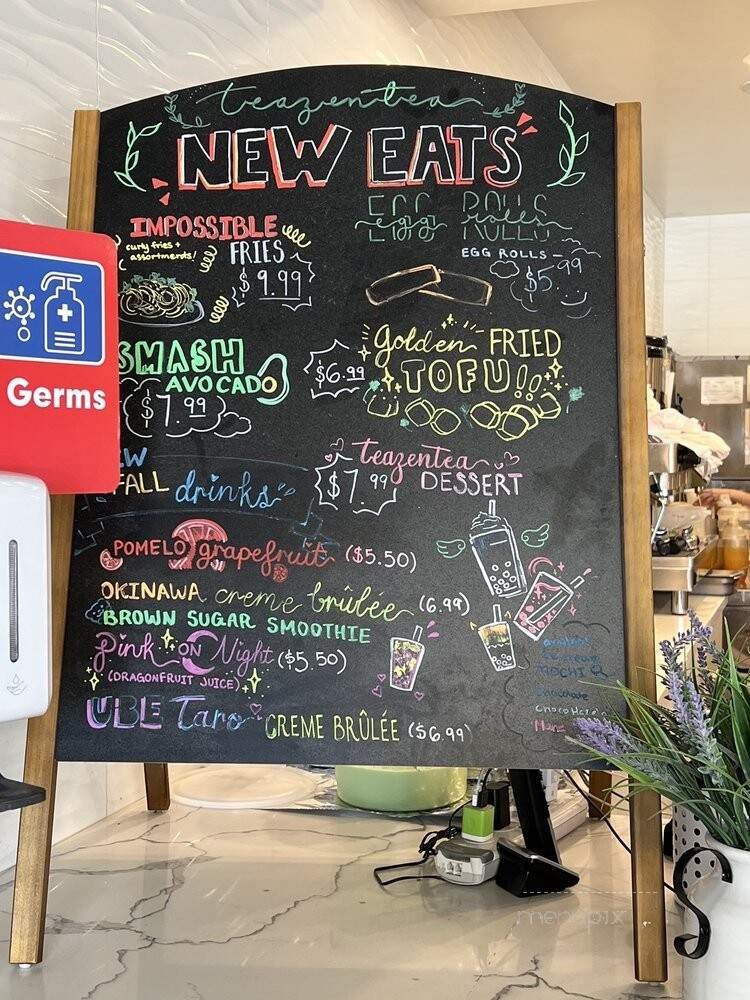 teazentea
NEW EATS
IMPOSSIBLE
FRIES
curly fries +
assortments!
$9.99
EGG ROLLS
egg rolls
EGG ROLLS -
$5.99
SMASH
AVOCADO
$7.99
Golden FRIED
TOFU!!
$6.99
Germs
FALL drinks
teazentea
DESSERT
$7.99
POMELO grapefruit ($5.50)
OKINAWA creme brûlée (6.99)
BROWN SUGAR SMOOTHIE
Pink ON Night ($5.50)
(DRAGONFRUIT JUICE)
UBE Taro CREME BRÛLÉE ($6.99)
MOCHI
chocolate
menupix